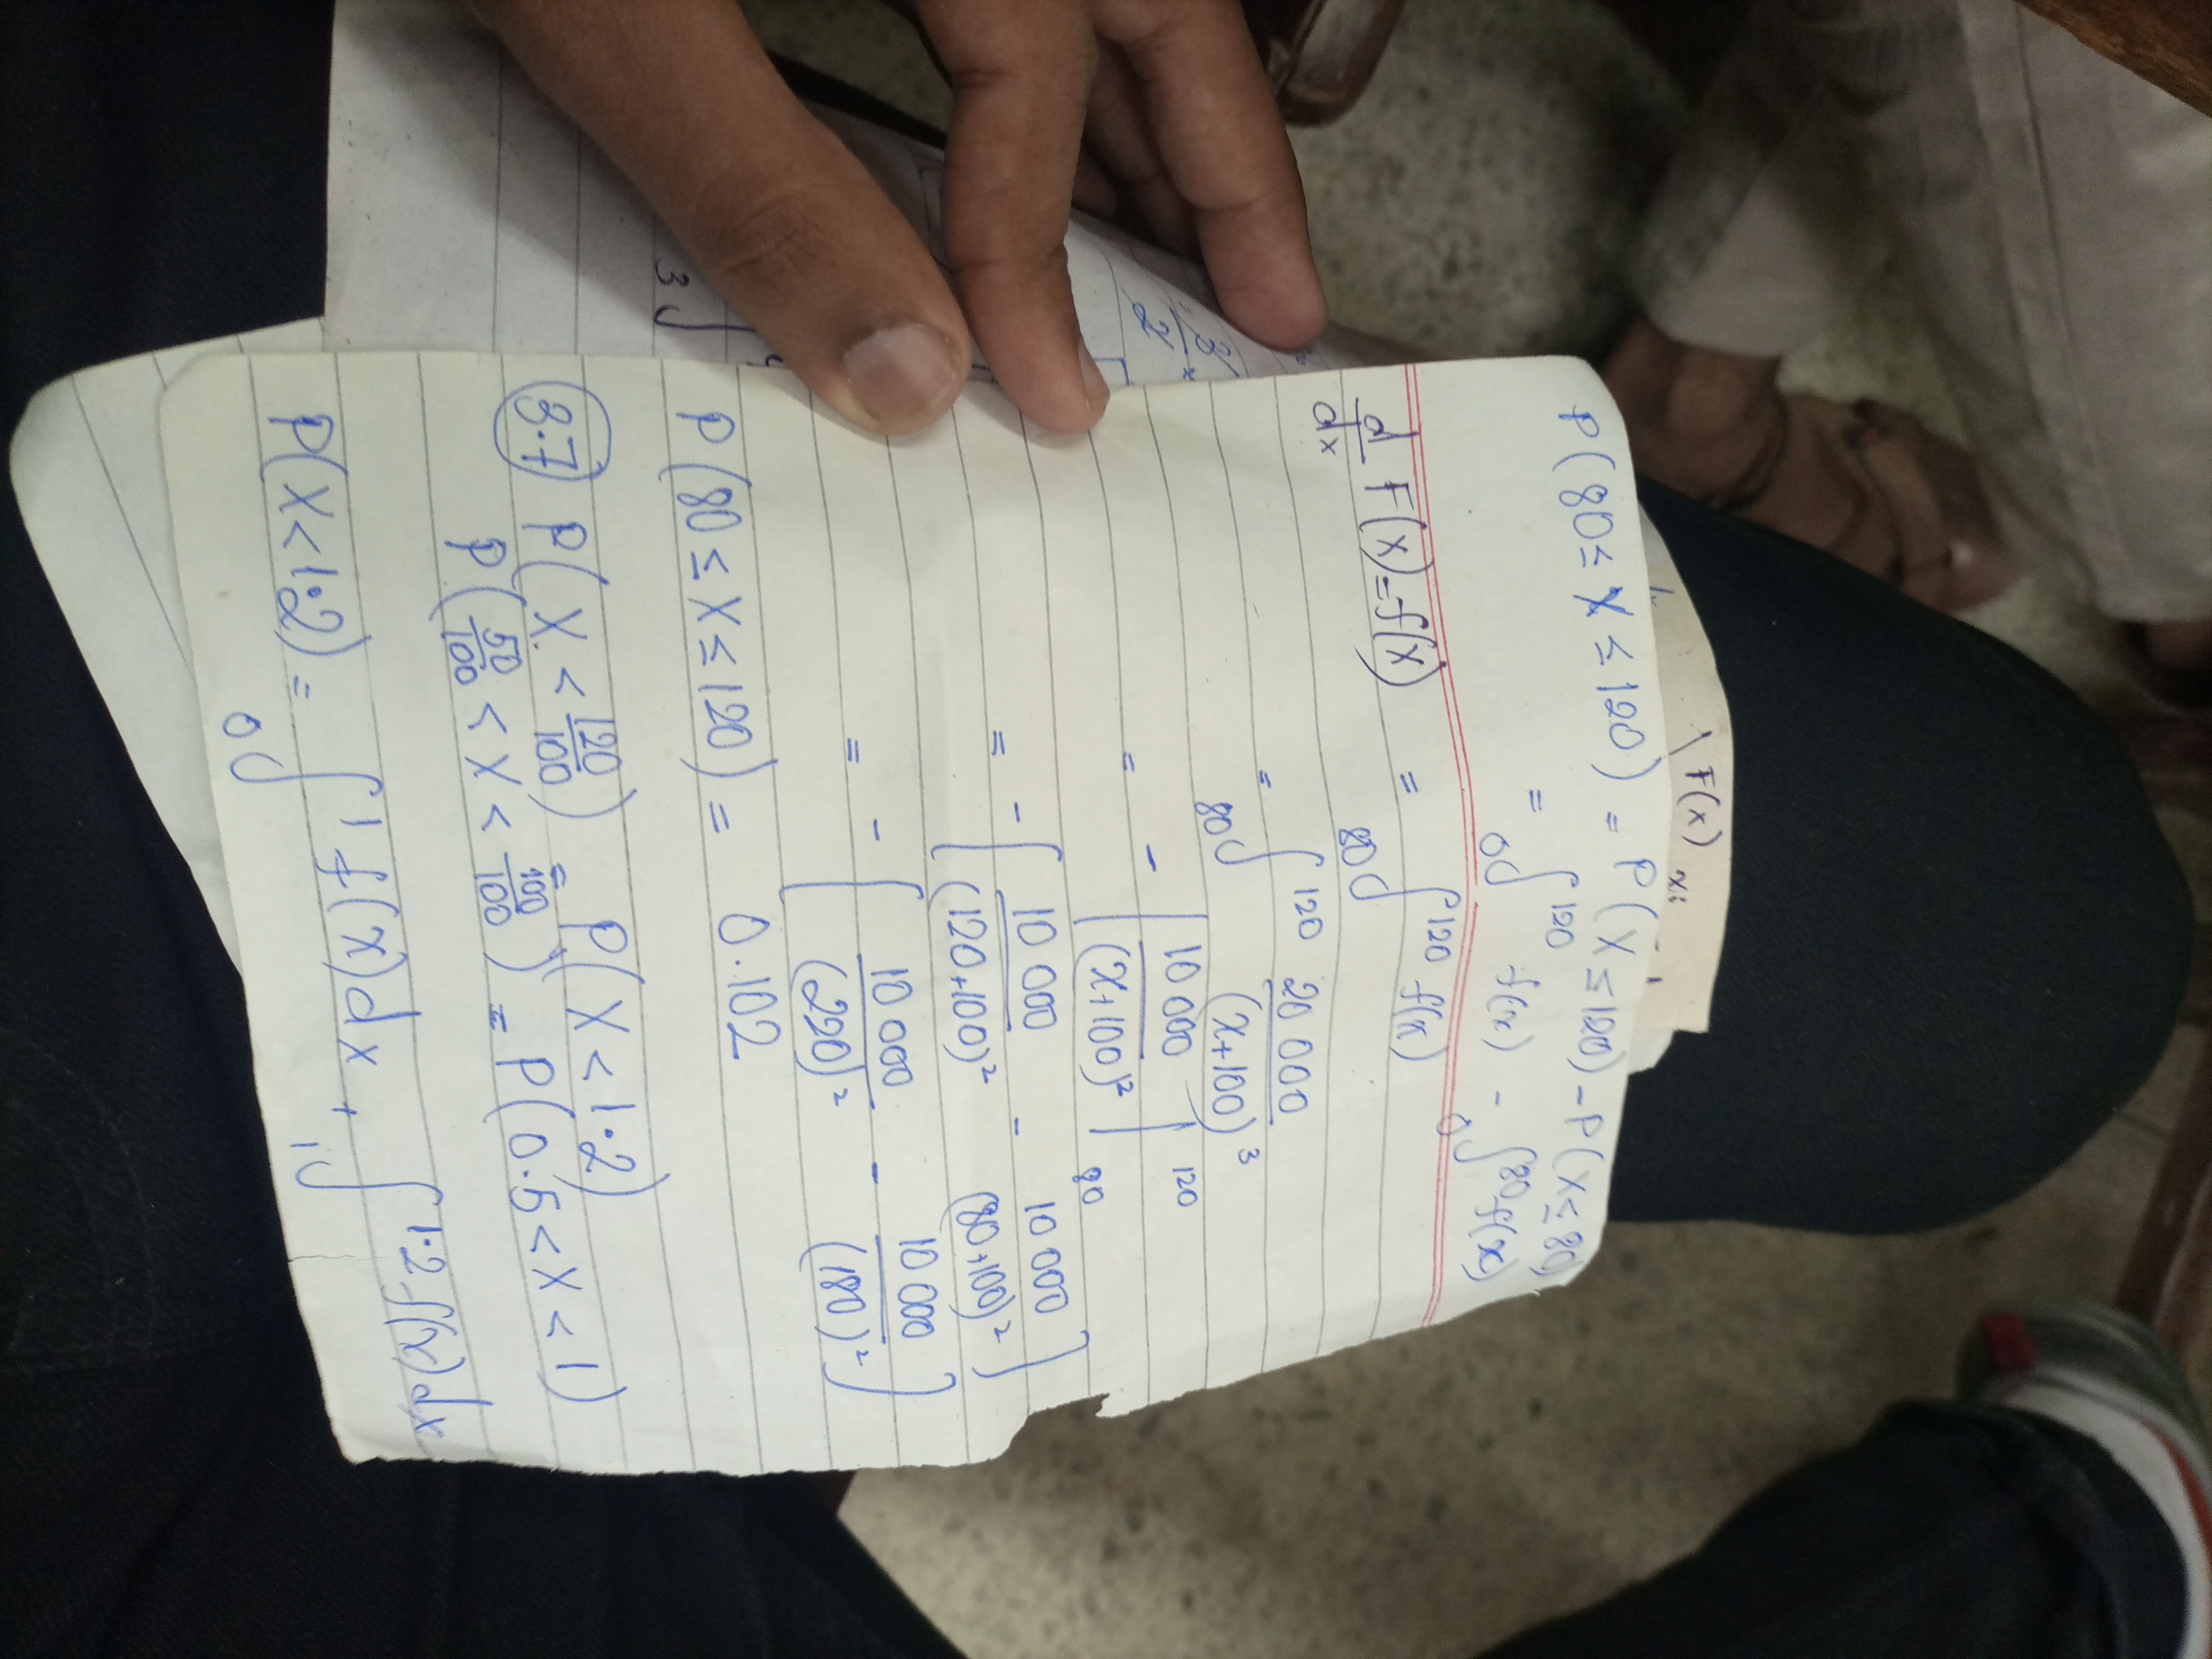 \ F(x) xi
P(80 ≤ X ≤ 120) = P(X ≤ 120) - P(X ≤ 80)
= 0∫120 f(x) - 0∫80 f(x)
d/dx F(x) = f(x)
= 80∫120 f(x)
= 80∫120 20 000/(x+100)³
= - | 10 000/(x+100)² | 120 80
= - [ 10 000/(120+100)² - 10 000/(80+100)² ]
= - [ 10 000/(220)² - 10 000/(180)² ]
P(80 ≤ X ≤ 120) = 0.102
3.7 P(X < 120/100) = P(X < 1.2)
P(50/100 < X < 100/100) = P(0.5 < X < 1)
P(X < 1.2) = 0∫1 f(x)dx + 1∫1.2 f(x)dx
3∫
3/2 x
2